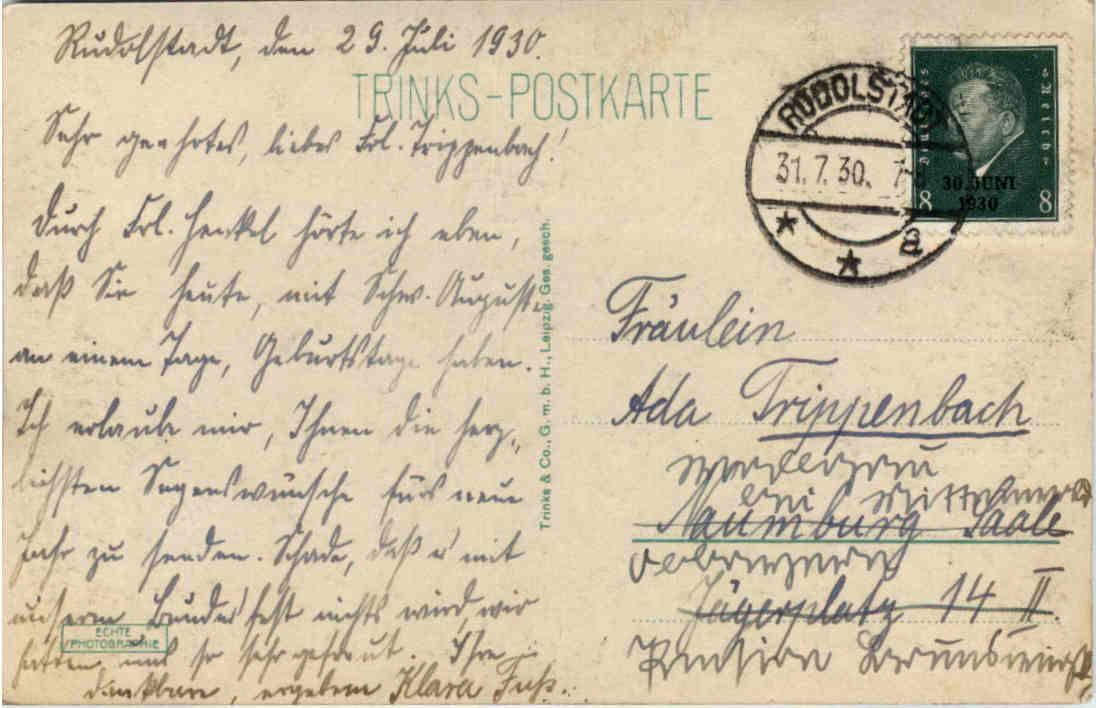 Rudolstadt, den 29. Juli 1930.
TRINKS-POSTKARTE
Sehr geehrtes, liebes Frl. Trippenbach!
Durch Frl. Henkel hörte ich eben,
daß Sie heute, mit Schw. Auguste
an einem Tage, Geburtstage haben.
Ich erlaube mir, Ihnen die herz-
lichsten Segenswünsche fürs neue
Jahr zu senden. Schade, daß es mit
unserem Bundesfest nichts wird, wir
hatten uns so sehr gefreut. Ihre
dankbare, ergebene Klara Fuß.
ECHTE
PHOTOGRAPHIE
Trinks & Co., G. m. b. H., Leipzig. Ges. gesch.
RUDOLSTADT
31.7.30. 7-8
a
Deutsches Reich
30. JUNI
1930
8 8
Fräulein
Ada Trippenbach
bei
Naumburg Saale
Jägerplatz 14 II.
Pension